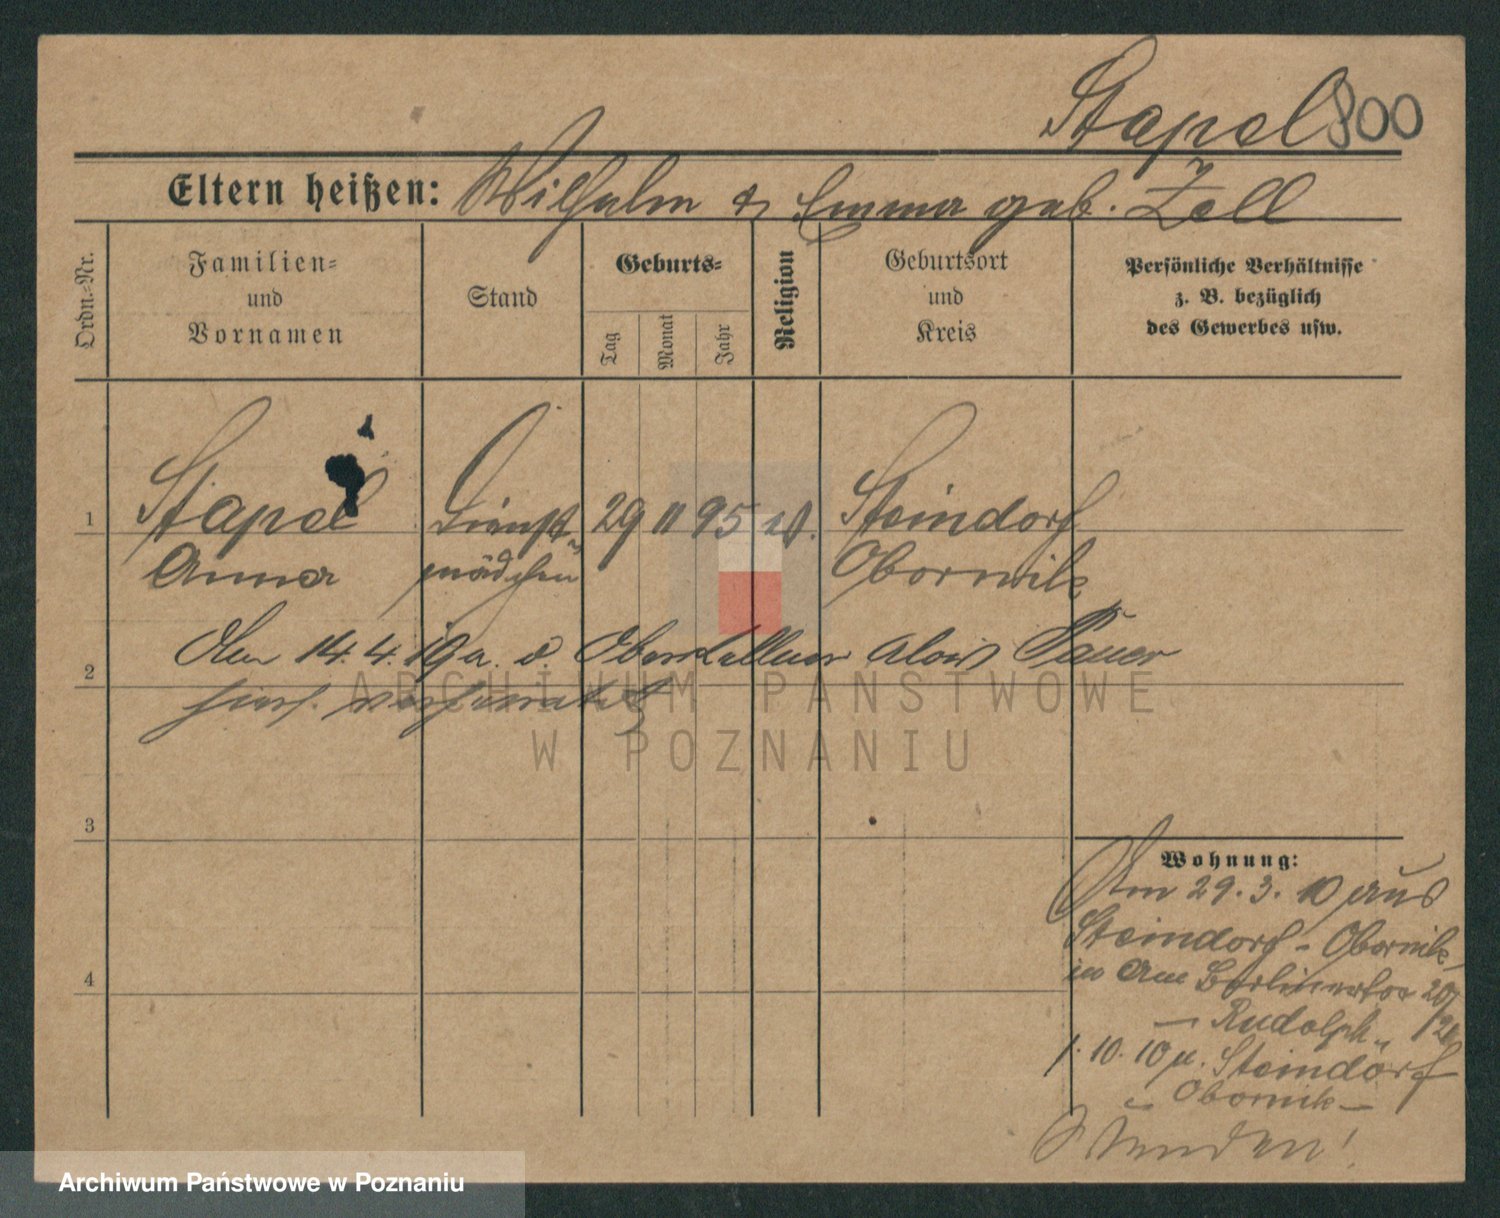 Stapel 800
Eltern heißen: Wilhelm & Emma geb. Zell
Ordn.-Nr.
Familien-
und
Vornamen
Stand
Geburts-
Tag
Monat
Jahr
Religion
Geburtsort
und
Kreis
Persönliche Verhältnisse
z. B. bezüglich
des Gewerbes usw.
1 Stapel Dienst- 29 11 95 Steindorf
Anna mädchen Obornik
Am 14.4.19 a. d. Oberkellner Alois Pauer
2
hier verheiratet
ARCHIWUM PAŃSTWOWE
W POZNANIU
3
Wohnung:
Am 29.3.10 aus
Steindorf - Obornik
4
in Berlinertor 20
Rudolph
1.10.10 Steindorf
Obornik
Wenden!
Archiwum Państwowe w Poznaniu